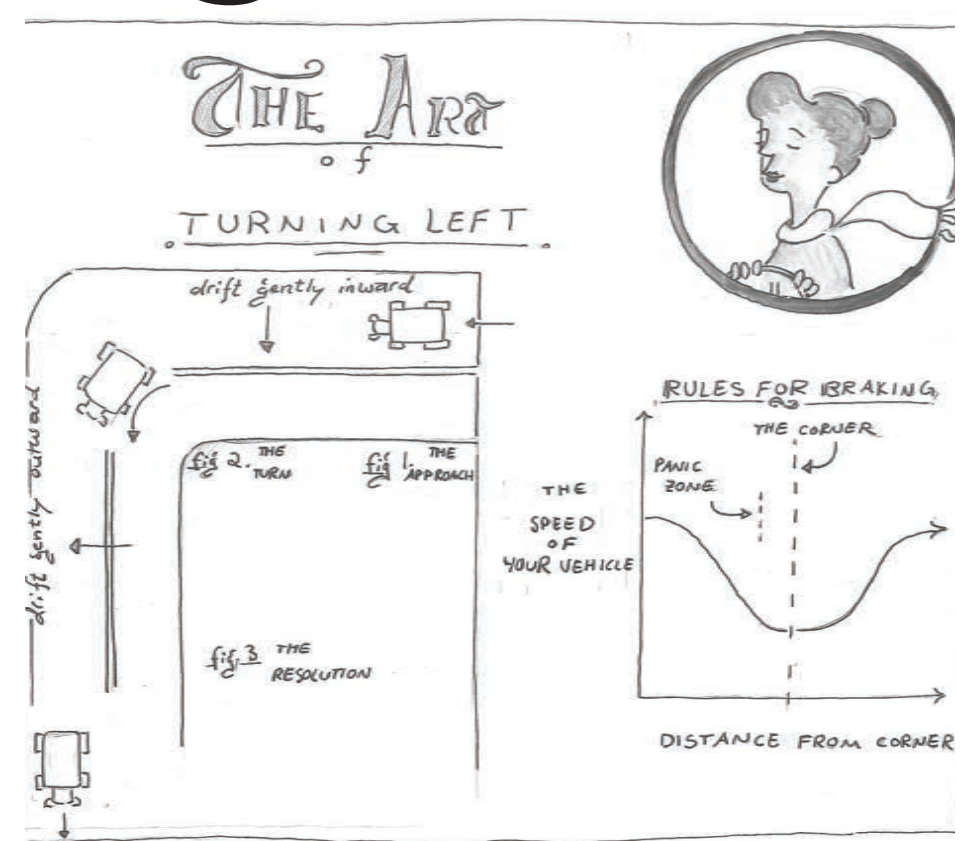 THE ART
of
TURNING LEFT
drift gently inward
drift gently outward
fig 2. THE
TURN
fig 1. THE
APPROACH
fig 3 THE
RESOLUTION
RULES FOR BRAKING
THE CORNER
PANIC
ZONE
THE
SPEED
OF
YOUR VEHICLE
DISTANCE FROM CORNER